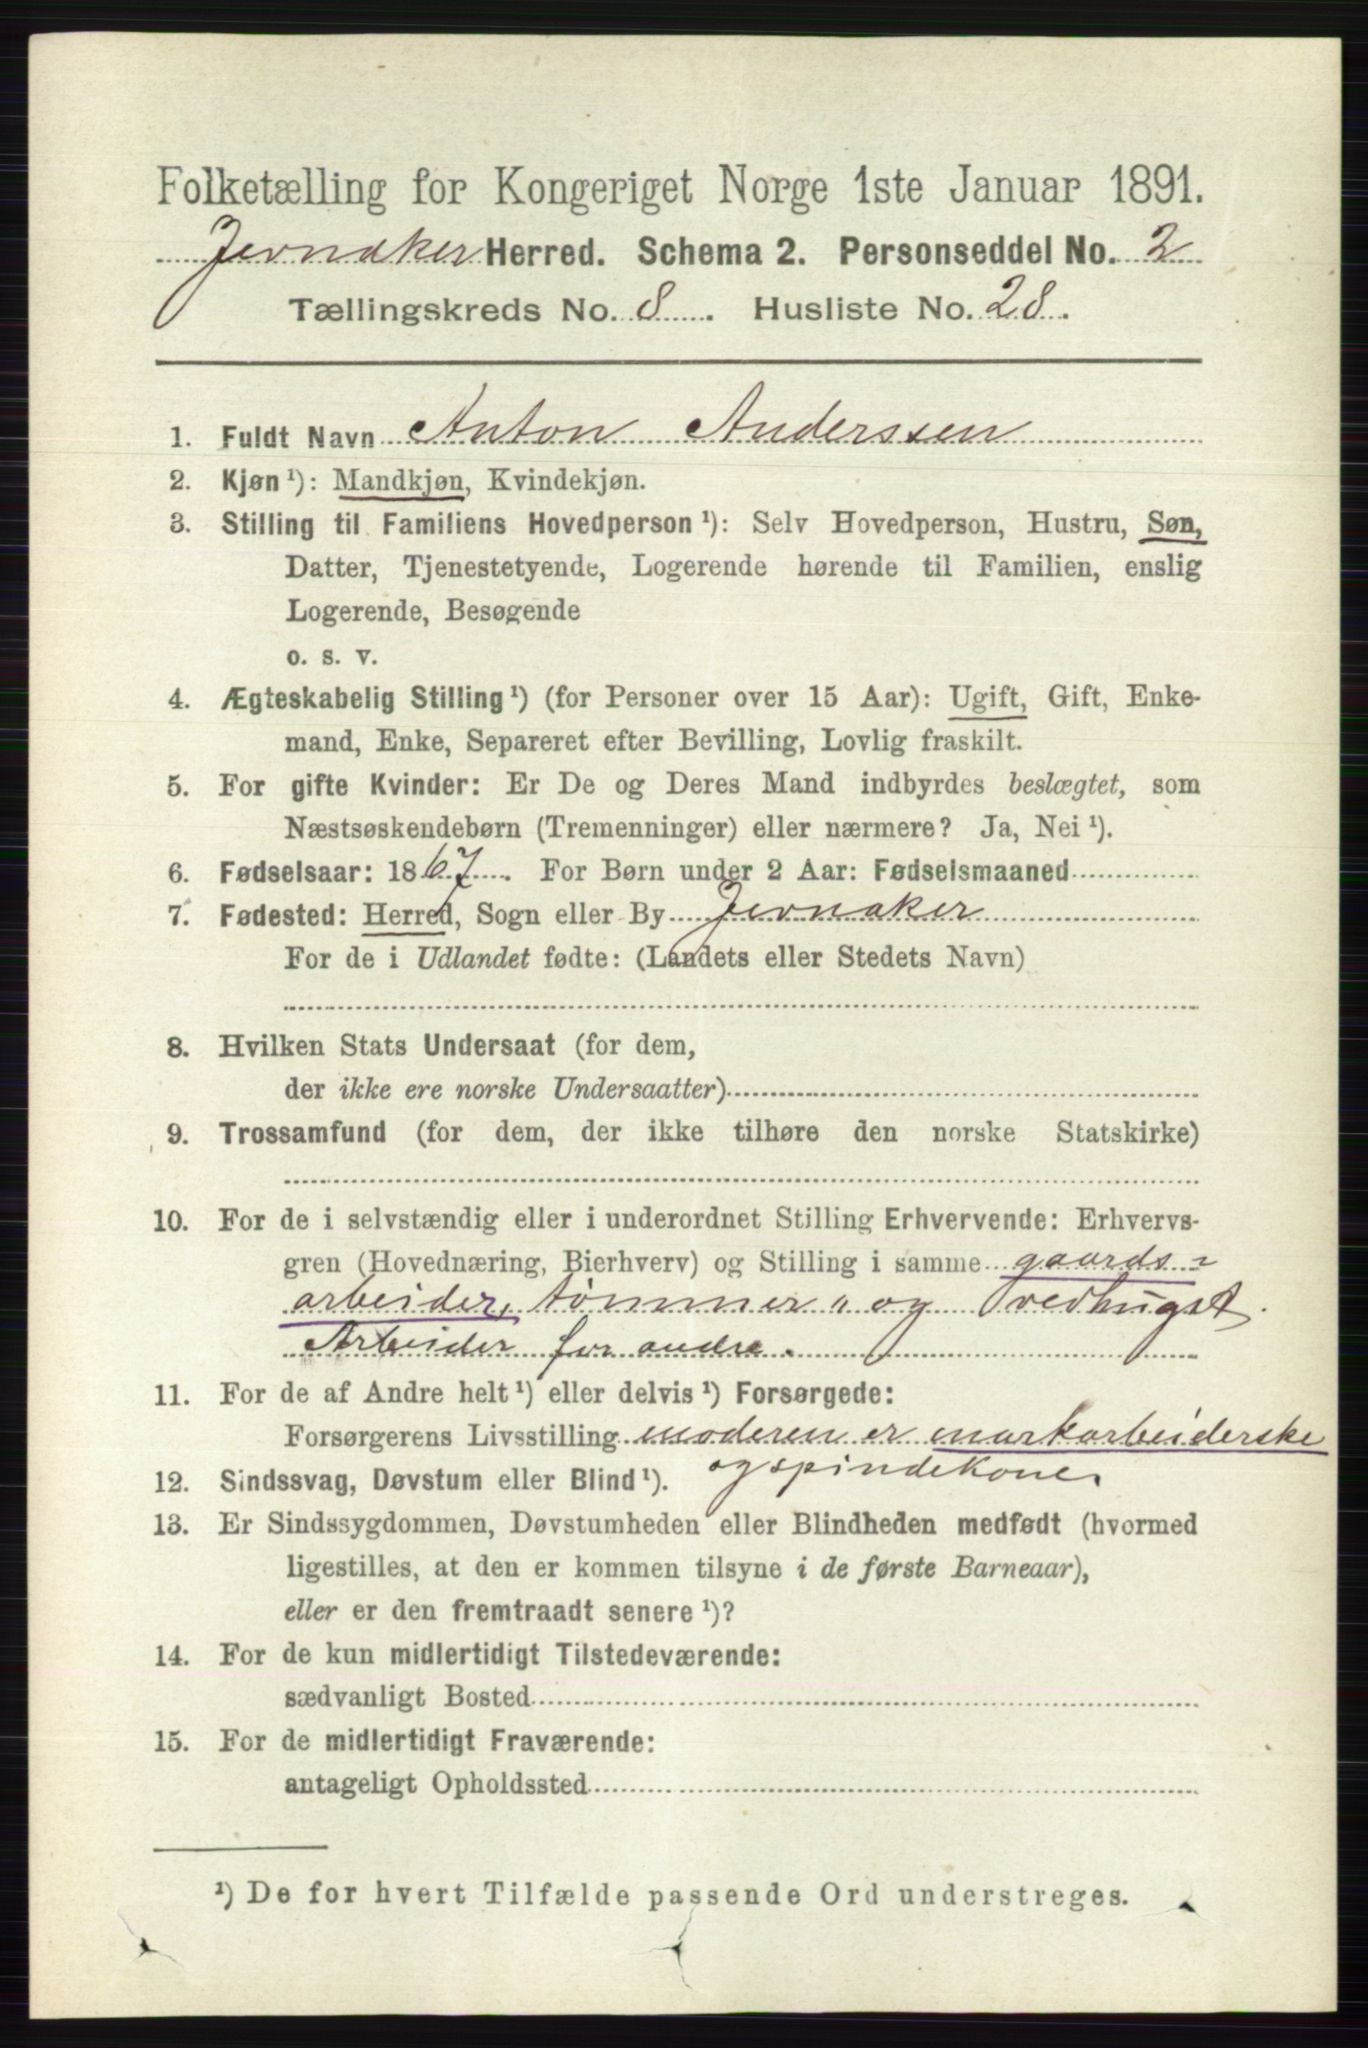 Folketælling for Kongeriget Norge 1ste Januar 1891.
Jevnaker Herred. Schema 2. Personseddel No. 2
Tællingskreds No. 8. Husliste No. 28.
1. Fuldt Navn Anton Anderssen
2. Kjøn ¹): Mandkjøn, Kvindekjøn.
3. Stilling til Familiens Hovedperson ¹): Selv Hovedperson, Hustru, Søn,
Datter, Tjenestetyende, Logerende hørende til Familien, enslig
Logerende, Besøgende
o. s. v.
4. Ægteskabelig Stilling ¹) (for Personer over 15 Aar): Ugift, Gift, Enke-
mand, Enke, Separeret efter Bevilling, Lovlig fraskilt.
5. For gifte Kvinder: Er De og Deres Mand indbyrdes beslægtet, som
Næstsøskendebørn (Tremenninger) eller nærmere? Ja, Nei ¹).
6. Fødselsaar: 1867. For Børn under 2 Aar: Fødselsmaaned
7. Fødested: Herred, Sogn eller By Jevnaker
For de i Udlandet fødte: (Landets eller Stedets Navn)
8. Hvilken Stats Undersaat (for dem,
der ikke ere norske Undersaatter)
9. Trossamfund (for dem, der ikke tilhøre den norske Statskirke)
10. For de i selvstændig eller i underordnet Stilling Erhvervende: Erhvervs-
gren (Hovednæring, Bierhverv) og Stilling i samme gaards-
arbeider, tømmer" og vedhugst.
Arbeider for andre.
11. For de af Andre helt ¹) eller delvis ¹) Forsørgede:
Forsørgerens Livsstilling moderen er markarbeiderske
og spindekone.
12. Sindssvag, Døvstum eller Blind ¹).
13. Er Sindssygdommen, Døvstumheden eller Blindheden medfødt (hvormed
ligestilles, at den er kommen tilsyne i de første Barneaar),
eller er den fremtraadt senere ¹)?
14. For de kun midlertidigt Tilstedeværende:
sædvanligt Bosted
15. For de midlertidigt Fraværende:
antageligt Opholdssted
¹) De for hvert Tilfælde passende Ord understreges.